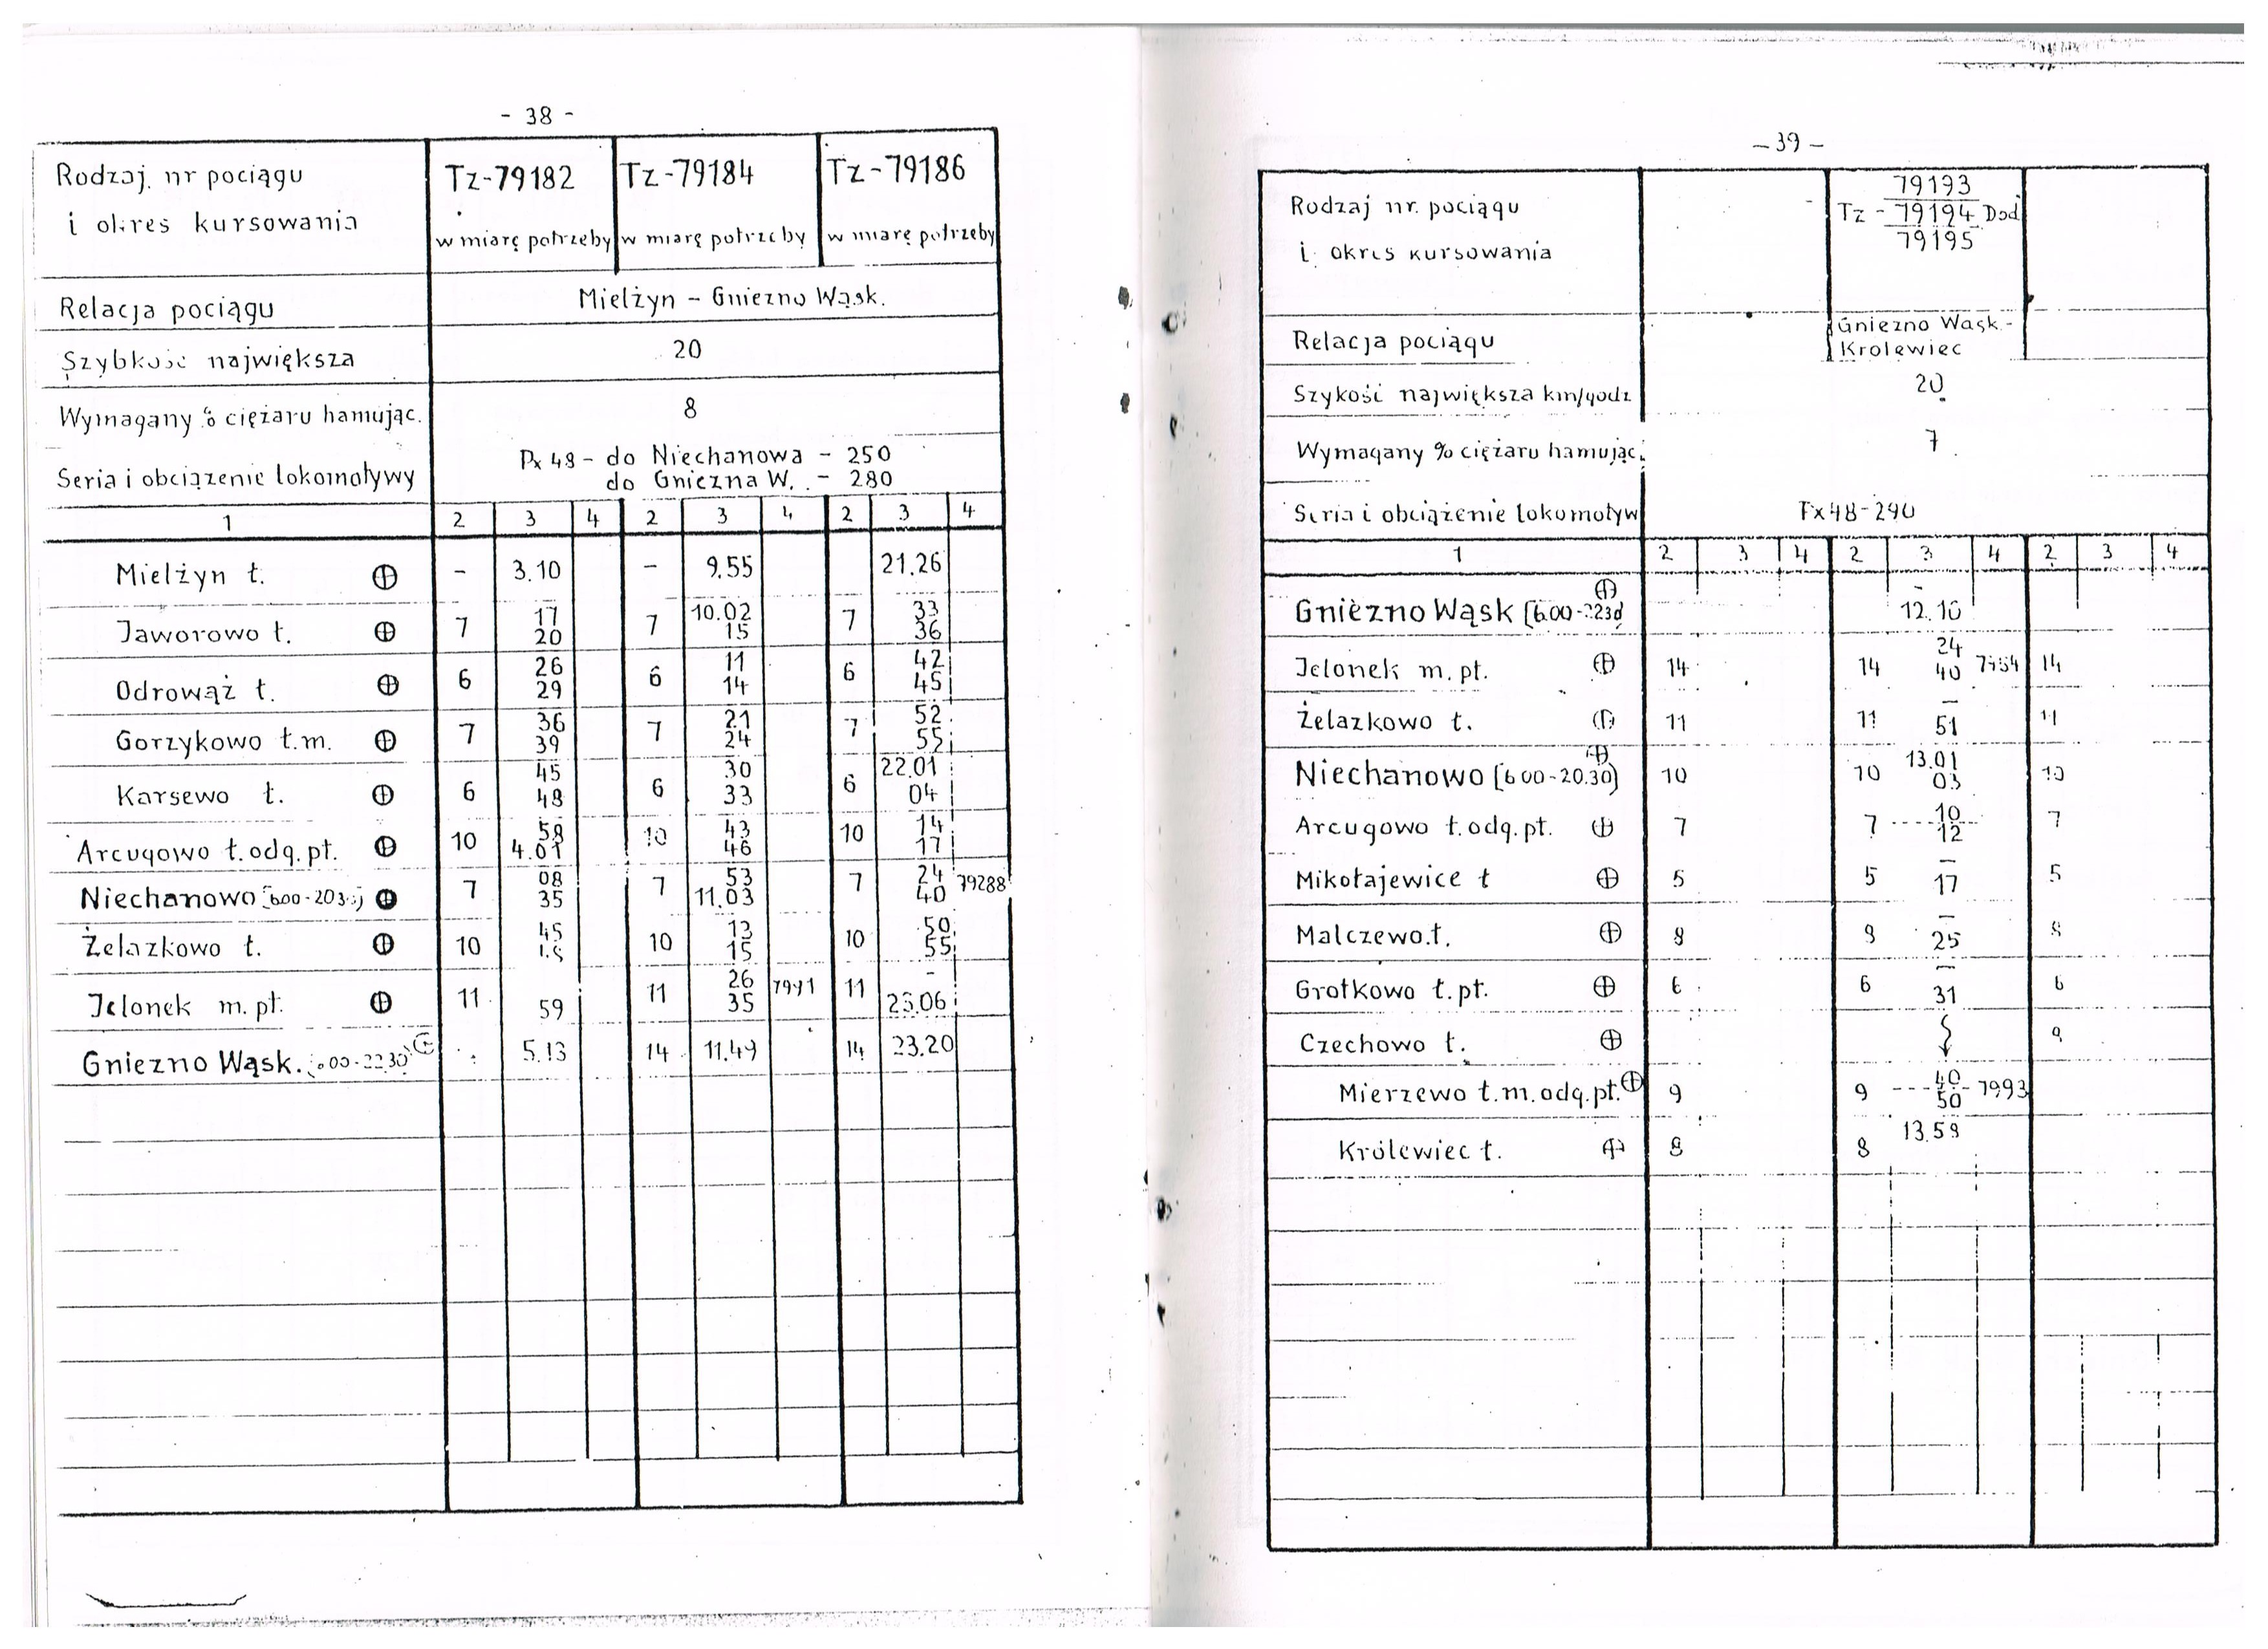 - 38 -
Rodzaj. nr pociągu
i okres kursowania
Tz-79182 Tz-79184 Tz-79186
w miarę potrzeby w miarę potrzeby w miarę potrzeby
Relacja pociągu Mielżyn - Gniezno Wąsk.
Szybkość największa 20
Wymagany % ciężaru hamując. 8
Seria i obciążenie lokomotywy Px 48 - do Niechanowa - 250
do Gniezna W. - 280
1 2 3 4 2 3 4 2 3 4
Mielżyn ł. ⊕ - 3.10 - 9.55 21.26
Jaworowo ł. ⊕ 7 17 20 7 10.02 15 7 33 36
Odrowąż ł. ⊕ 6 26 29 6 11 14 6 42 45
Gorzykowo ł.m. ⊕ 7 36 39 7 21 24 7 52 55
Karsewo ł. ⊕ 6 45 48 6 30 33 6 22.01 04
Arcugowo ł.odg.pt. ⊕ 10 58 4.01 10 43 46 10 14 17
Niechanowo ⊕ 7 08 35 7 53 11.03 7 24 40 79288
Żelazkowo ł. ⊕ 10 45 10 13 15 10 50 55
Jelonek m.pt. ⊕ 11 59 11 26 35 11 - 23.06
Gniezno Wąsk. 5.13 14 11.49 14 23.20
- 39 -
Rodzaj nr. pociągu
i okres kursowania
79193
Tz - 79194 Dod
79195
Relacja pociągu Gniezno Wąsk.-
Krolewiec
Szykość największa km/godz 20
Wymagany % ciężaru hamując. 7
Seria i obciążenie lokomotyw Px48-290
1 2 3 4 2 3 4 2 3 4
Gniezno Wąsk ⊕ - 12.10
Jelonek m.pt. ⊕ 14 14 24 40 14
Żelazkowo ł. ⊕ 11 11 - 51 11
Niechanowo [6 00-20.30) ⊕ 10 10 13.01 03 10
Arcugowo ł.odg.pt. ⊕ 7 7 10 12 7
Mikołajewice ł ⊕ 5 5 - 17 5
Malczewo.ł. ⊕ 8 8 - 25 8
Grotkowo ł.pt. ⊕ 6 6 - 31 6
Czechowo ł. ⊕ 9
Mierzewo ł.m.odg.pt. ⊕ 9 9 40 50 7993
Królewiec ł. ⊕ 8 8 13.58